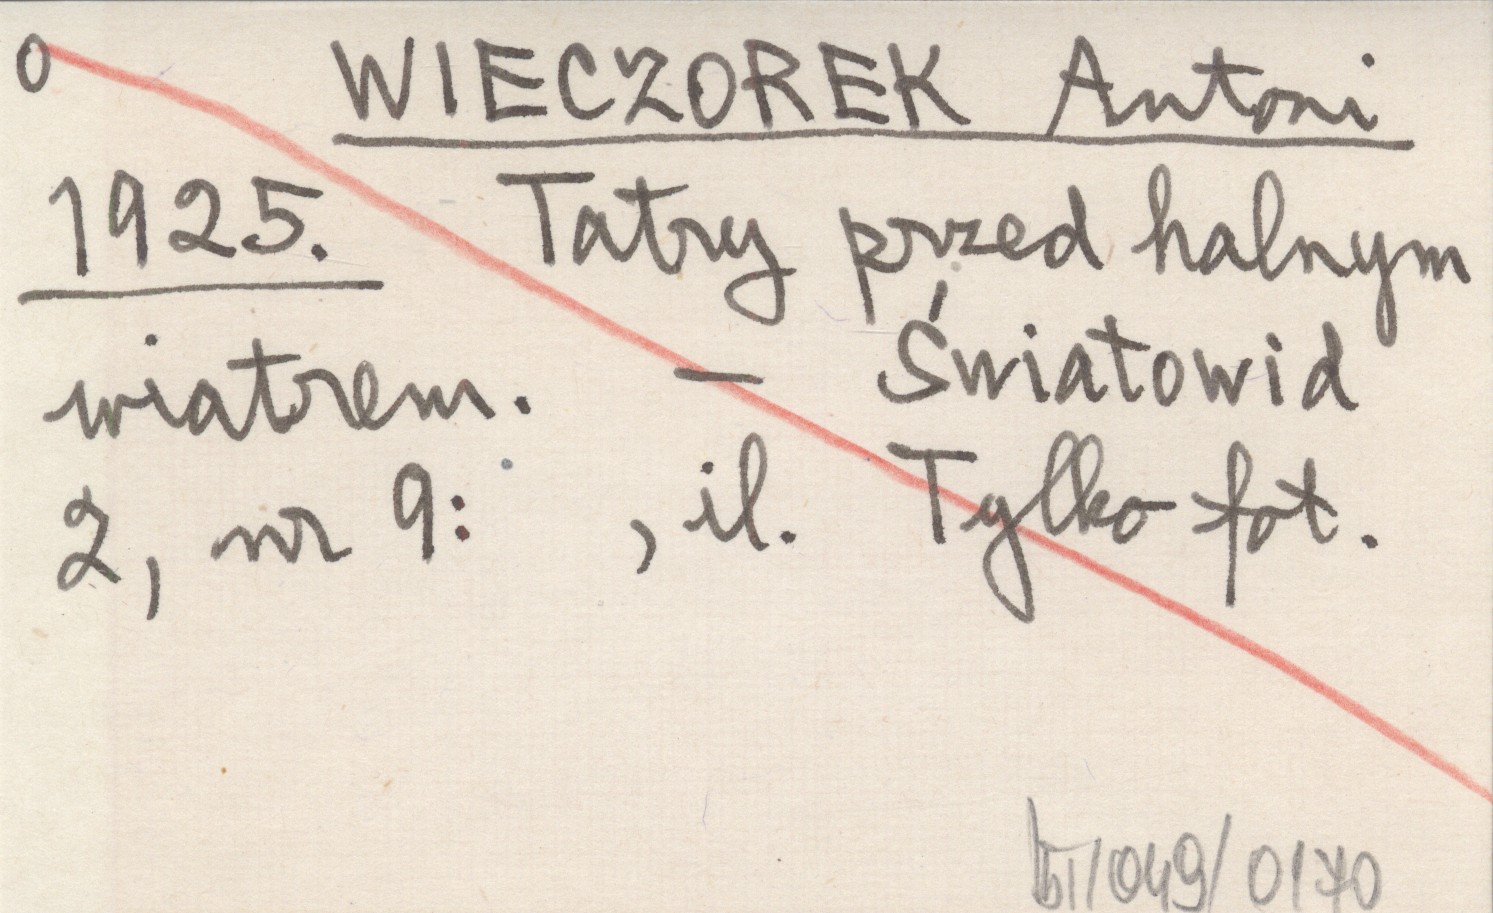 0 WIECZOREK Antoni
1925. Tatry przed halnym
wiatrem. – Światowid
2, nr 9: , il. Tylko fot.
/049/0170